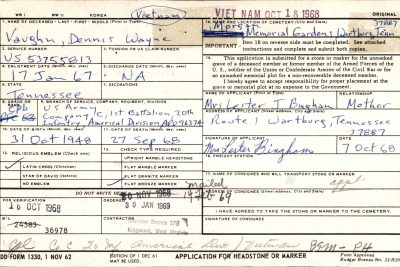 WW I
WW II
KOREA
(Vietnam)
VIET NAM OCT 18 1968
ORIGINAL
1. NAME OF DECEASED - LAST - FIRST - MIDDLE (Print or Type)
Vaughn, Dennis Wayne
NAME AND LOCATION OF CEMETERY (City and State)
37887
Morgan
Memorial Gardens, Wartburg, Tenn
2. SERVICE NUMBER
US 53755813
3. PENSION OR VA CLAIM NUMBER
IMPORTANT
Item 18 on reverse side must be completed. See attached instructions and complete and submit both copies.
4. ENLISTMENT DATE
17 Jan 67
5. DISCHARGE DATE
NA
This application is submitted for a stone or marker for the unmarked grave of a deceased member or former member of the Armed Forces of the U.S., soldier of the Union or Confederate Armies of the Civil War or for an unmarked memorial plot for a non-recoverable deceased member.
I hereby agree to accept responsibility for proper placement at the grave or memorial plot at no expense to the Government.
7. STATE
Tennessee
Mrs Lester T. Bingham
Mother
8. GRADE
9. BRANCH OF SERVICE, COMPANY, REGIMENT, DIVISION
US Army
Company C, 1st Battalion, 20th
Infantry, Americal Division, APO 96374
Route 1 Wartburg, Tennessee
37887
10. DATE OF BIRTH
31 Oct 1948
11. DATE OF DEATH
27 Sep 68
SIGNATURE OF APPLICANT
Mrs Lester Bingham
DATE
7 Oct 68
12. RELIGIOUS EMBLEM (Check one)
LATIN CROSS (Christian)
STAR OF DAVID (Hebrew)
NO EMBLEM
13. CHECK TYPE REQUIRED
UPRIGHT MARBLE HEADSTONE
FLAT MARBLE MARKER
FLAT GRANITE MARKER
FLAT BRONZE MARKER
16. FREIGHT STATION
17. NAME OF CONSIGNEE WHO WILL TRANSPORT STONE OR MARKER
appl
DO NOT WRITE
16 OCT 1968
20 NOV 1968
30 JAN 1969
mailed
14 Feb 69
24383
36978
Kingwood, West Virginia
I HAVE AGREED TO TAKE THE STONE OR MARKER TO THE CEMETERY.
SIGNATURE OF CONSIGNEE
DATE
Cpl Co C 20 Inf Americal Div / Vietnam BSM - PH
DD FORM 1330, 1 NOV 62
EDITION OF 1 DEC 61
MAY BE USED
APPLICATION FOR HEADSTONE OR MARKER
Form Approved
Budget Bureau No.